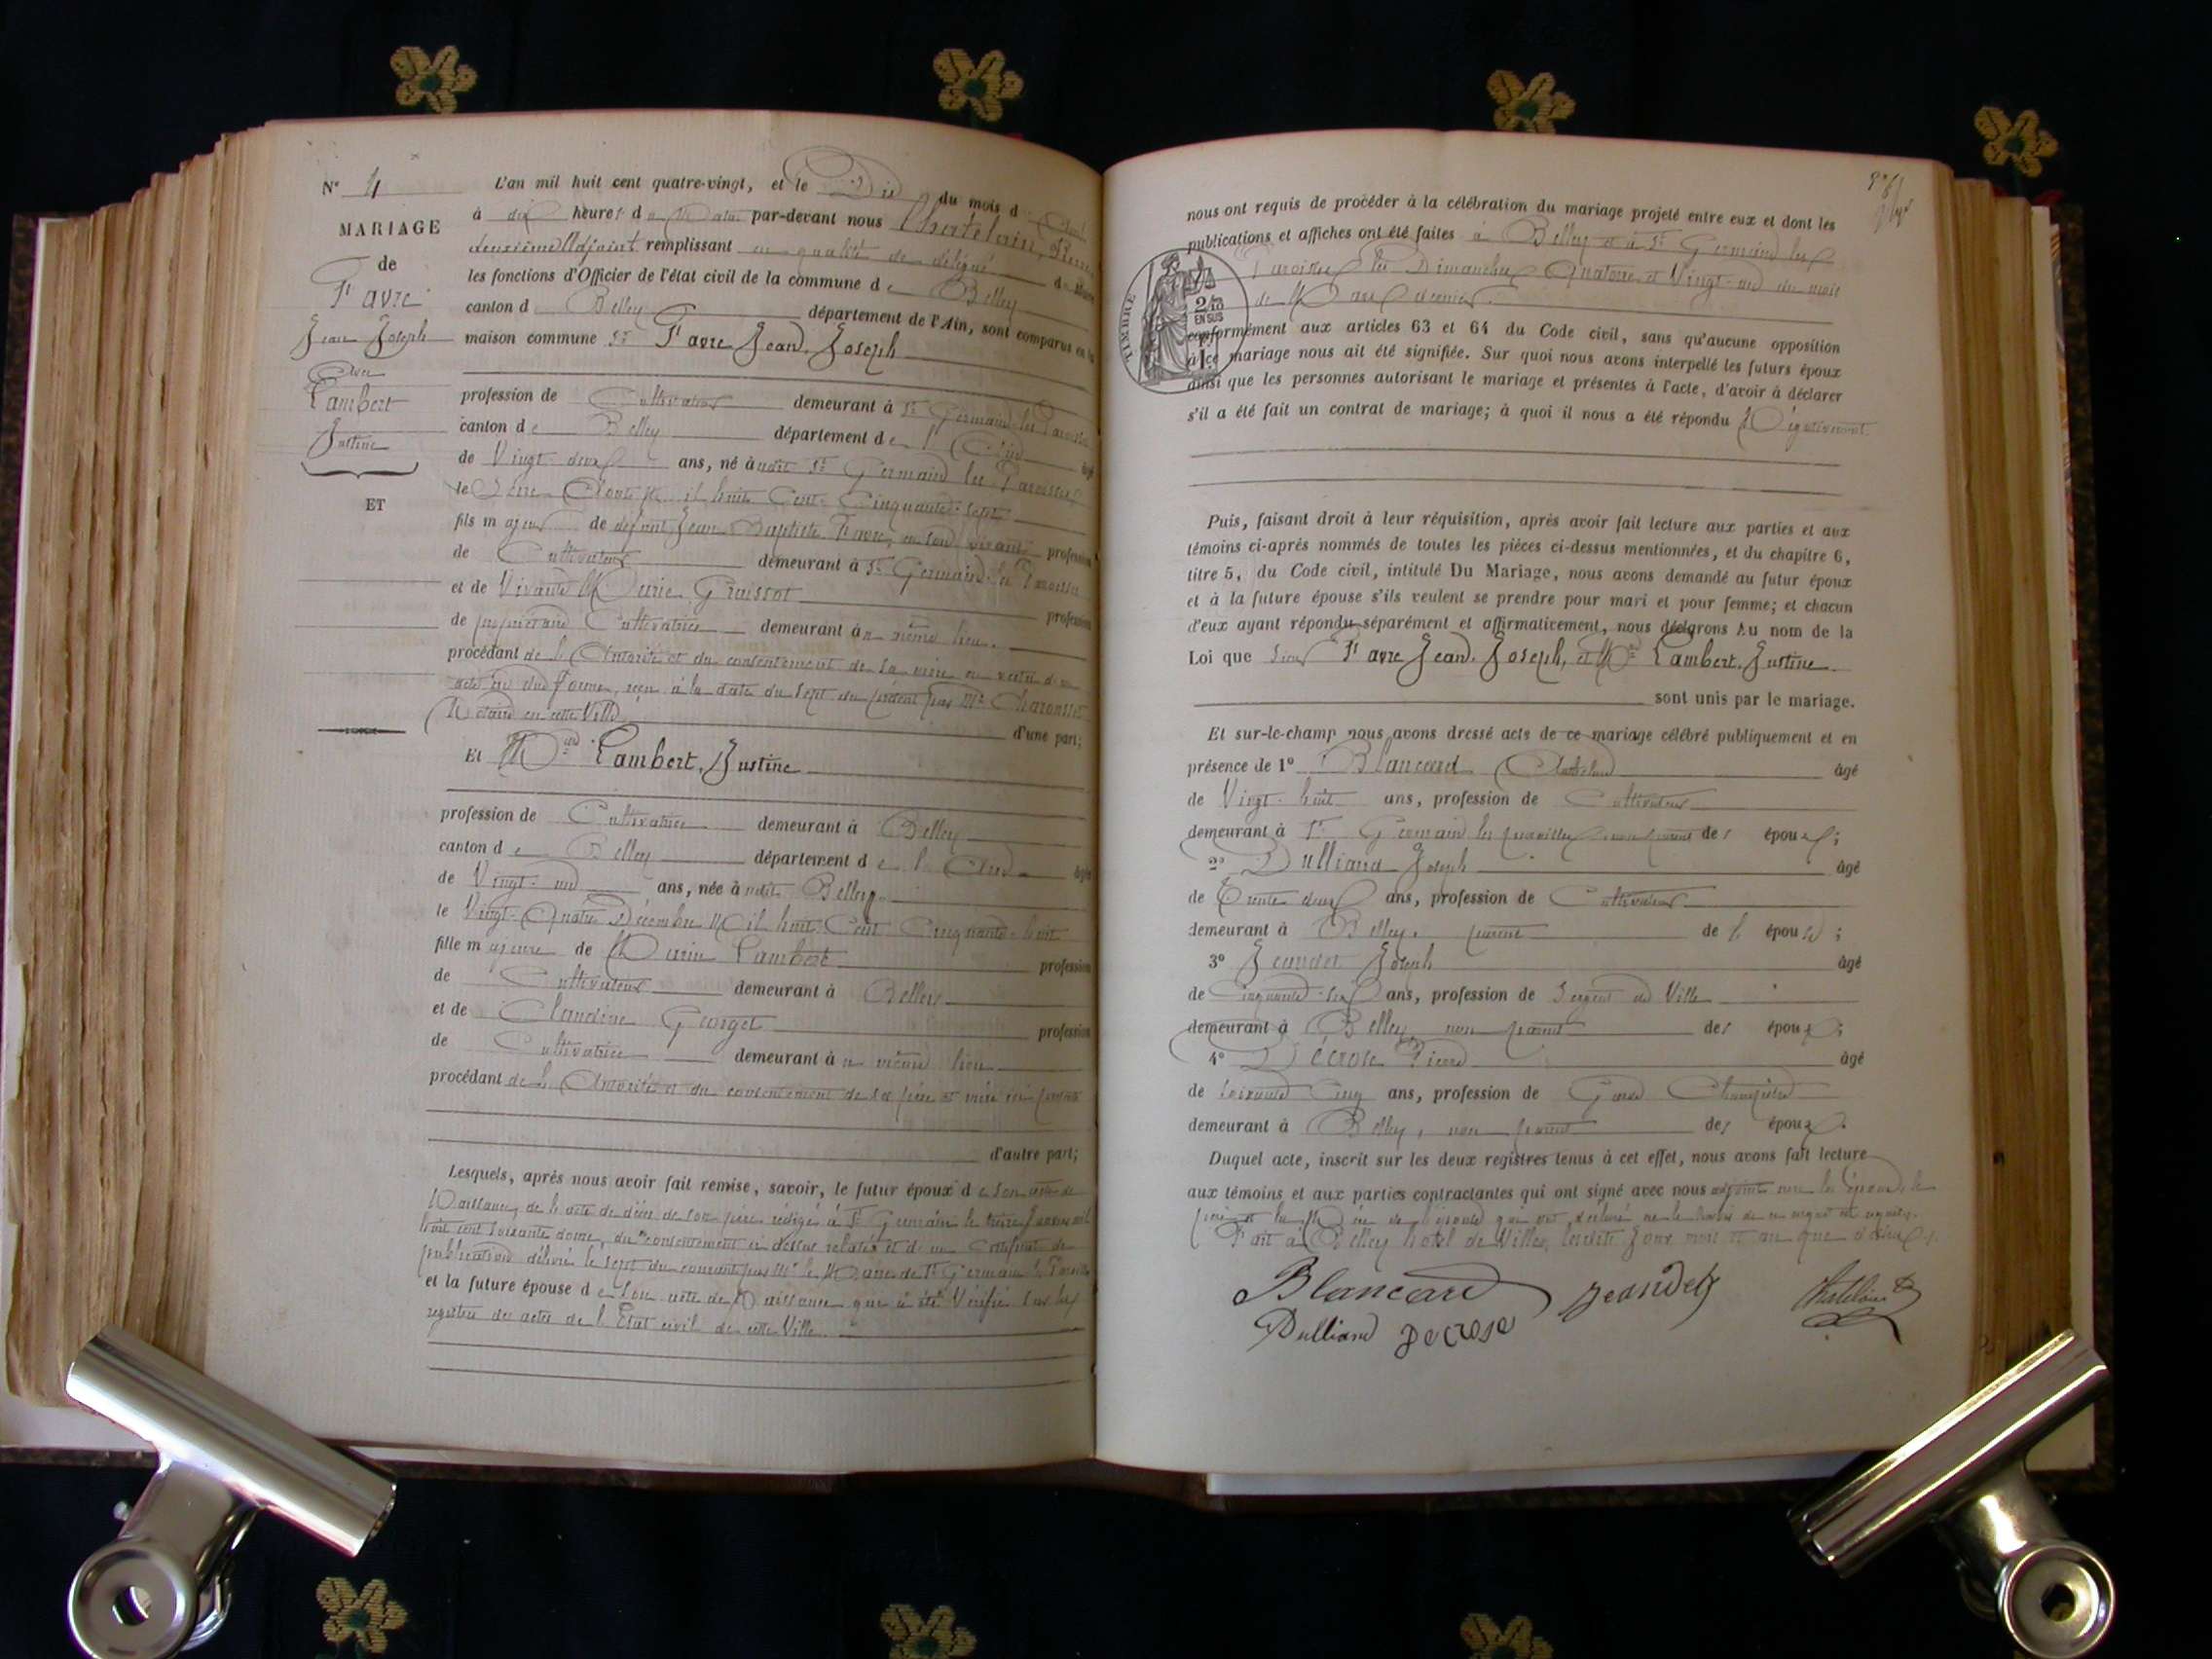 N° 4
MARIAGE
de
Favre
Jean Joseph
Avec
Lambert
Justine
ET
L'an mil huit cent quatre-vingt, et le Dix du mois d'Avril
à dix heures du Matin par-devant nous Chatelain, Pierre
deuxième Adjoint remplissant en qualité de délégué du Maire
les fonctions d'Officier de l'état civil de la commune de Belley
canton de Belley département de l'Ain, sont comparus en la
maison commune Sr Favre Jean Joseph
profession de Cultivateur demeurant à St Germain les Paroisses
canton de Belley département de l'Ain âgé
de Vingt deux ans, né audit St Germain les Paroisses
le Août mil huit Cent Cinquante sept
fils majeur de défunt Jean Baptiste Favre, en son vivant profession
de Cultivateur demeurant à St Germain les Paroisses
et de Vivante Marie Graissot profession
de propriétaire Cultivatrice demeurant au même lieu.
procédant de l'Autorité et du consentement de sa mère en vertu d'un
acte en due forme, reçu à la date du sept du présent par Me
Notaire en cette Ville d'une part;
Et Mlle Lambert, Justine
profession de Cultivatrice demeurant à Belley
canton de Belley département de l'Ain âgée
de Vingt-un ans, née audit Belley
le Vingt-Quatre Décembre Mil huit Cent Cinquante-huit
fille majeure de Marin Lambert profession
de Cultivateur demeurant à Belley
et de Claudine Georget profession
de Cultivatrice demeurant au même lieu
procédant de l'Autorité et du consentement de ses père et mère ici présents
d'autre part;
Lesquels, après nous avoir fait remise, savoir, le futur époux de son acte de
Naissance, de l'acte de décès de son père rédigé à St Germain le treize Janvier mil
huit cent soixante douze, du consentement ci dessus relaté et d'un Certificat de
publication délivré le sept du courant par Mr le Maire de St Germain les Paroisses
et la future épouse de son acte de Naissance qui a été Vérifié sur les
registres des actes de l'Etat civil de cette Ville.
nous ont requis de procéder à la célébration du mariage projeté entre eux et dont les
publications et affiches ont été faites à Belley et à St Germain les
Paroisses les Dimanches Quatorze et Vingt-un du mois
de Mars dernier.
TIMBRE
2/10
EN SUS
conformément aux articles 63 et 64 du Code civil, sans qu'aucune opposition
à ce mariage nous ait été signifiée. Sur quoi nous avons interpellé les futurs époux
ainsi que les personnes autorisant le mariage et présentes à l'acte, d'avoir à déclarer
s'il a été fait un contrat de mariage; à quoi il nous a été répondu Négativement
Puis, faisant droit à leur réquisition, après avoir fait lecture aux parties et aux
témoins ci-après nommés de toutes les pièces ci-dessus mentionnées, et du chapitre 6,
titre 5, du Code civil, intitulé Du Mariage, nous avons demandé au futur époux
et à la future épouse s'ils veulent se prendre pour mari et pour femme; et chacun
d'eux ayant répondu séparément et affirmativement, nous déclarons Au nom de la
Loi que Sieur Favre Jean Joseph, et Mlle Lambert, Justine
sont unis par le mariage.
Et sur-le-champ nous avons dressé acte de ce mariage célébré publiquement et en
présence de 1° Blancard âgé
de Vingt-huit ans, profession de Cultivateur
demeurant à St Germain les paroisses, non parent des époux;
2° Dulliand Joseph âgé
de Trente deux ans, profession de Cultivateur
demeurant à Belley, parent de l'épouse;
3° Jeandet Joseph âgé
de Cinquante-six ans, profession de Sergent de Ville
demeurant à Belley, non parent des époux;
4° Décrose Pierre âgé
de Soixante Cinq ans, profession de Garde Champêtre
demeurant à Belley, non parent des époux.
Duquel acte, inscrit sur les deux registres tenus à cet effet, nous avons fait lecture
aux témoins et aux parties contractantes qui ont signé avec nous adjoint non les époux, le
père et la Mère de l'épouse qui ont déclaré ne le savoir de ce enquis et requis.
Fait à Belley hotel de Ville, lesdits Jour mois et an que dessus.
Blancard Jeandet Chatelain
Dulliand Decrose